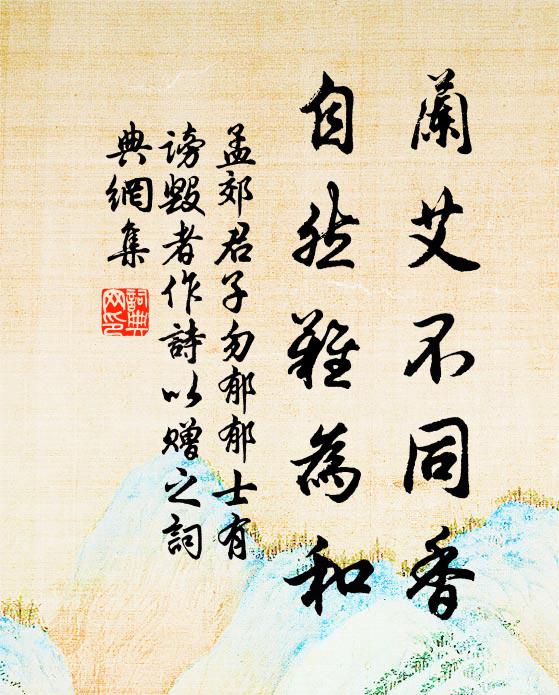 蘭艾不同香
自然難為和
孟郊君子勿郁郁士有
謗毀者作詩以贈之詞
典網集
詞典網印